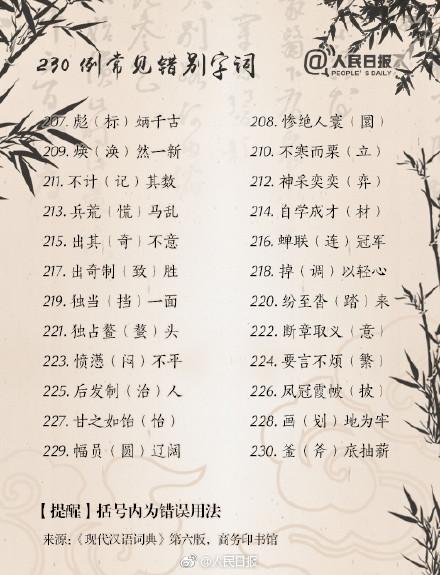 230例常见错别字词
@人民日报
PEOPLE'S DAILY
207. 彪（标）炳千古
208. 惨绝人寰（圜）
209. 焕（涣）然一新
210. 不寒而粟（立）
211. 不计（记）其数
212. 神采奕奕（弈）
213. 兵荒（慌）马乱
214. 自学成才（材）
215. 出其（奇）不意
216. 蝉联（连）冠军
217. 出奇制（致）胜
218. 掉（调）以轻心
219. 独当（挡）一面
220. 纷至沓（踏）来
221. 独占鳌（鳌）头
222. 断章取义（意）
223. 愤懑（闷）不平
224. 要言不烦（繁）
225. 后发制（治）人
226. 凤冠霞帔（披）
227. 甘之如饴（怡）
228. 画（划）地为牢
229. 幅员（圆）辽阔
230. 釜（斧）底抽薪
【提醒】括号内为错误用法
来源：《现代汉语词典》第六版，商务印书馆
@人民日报